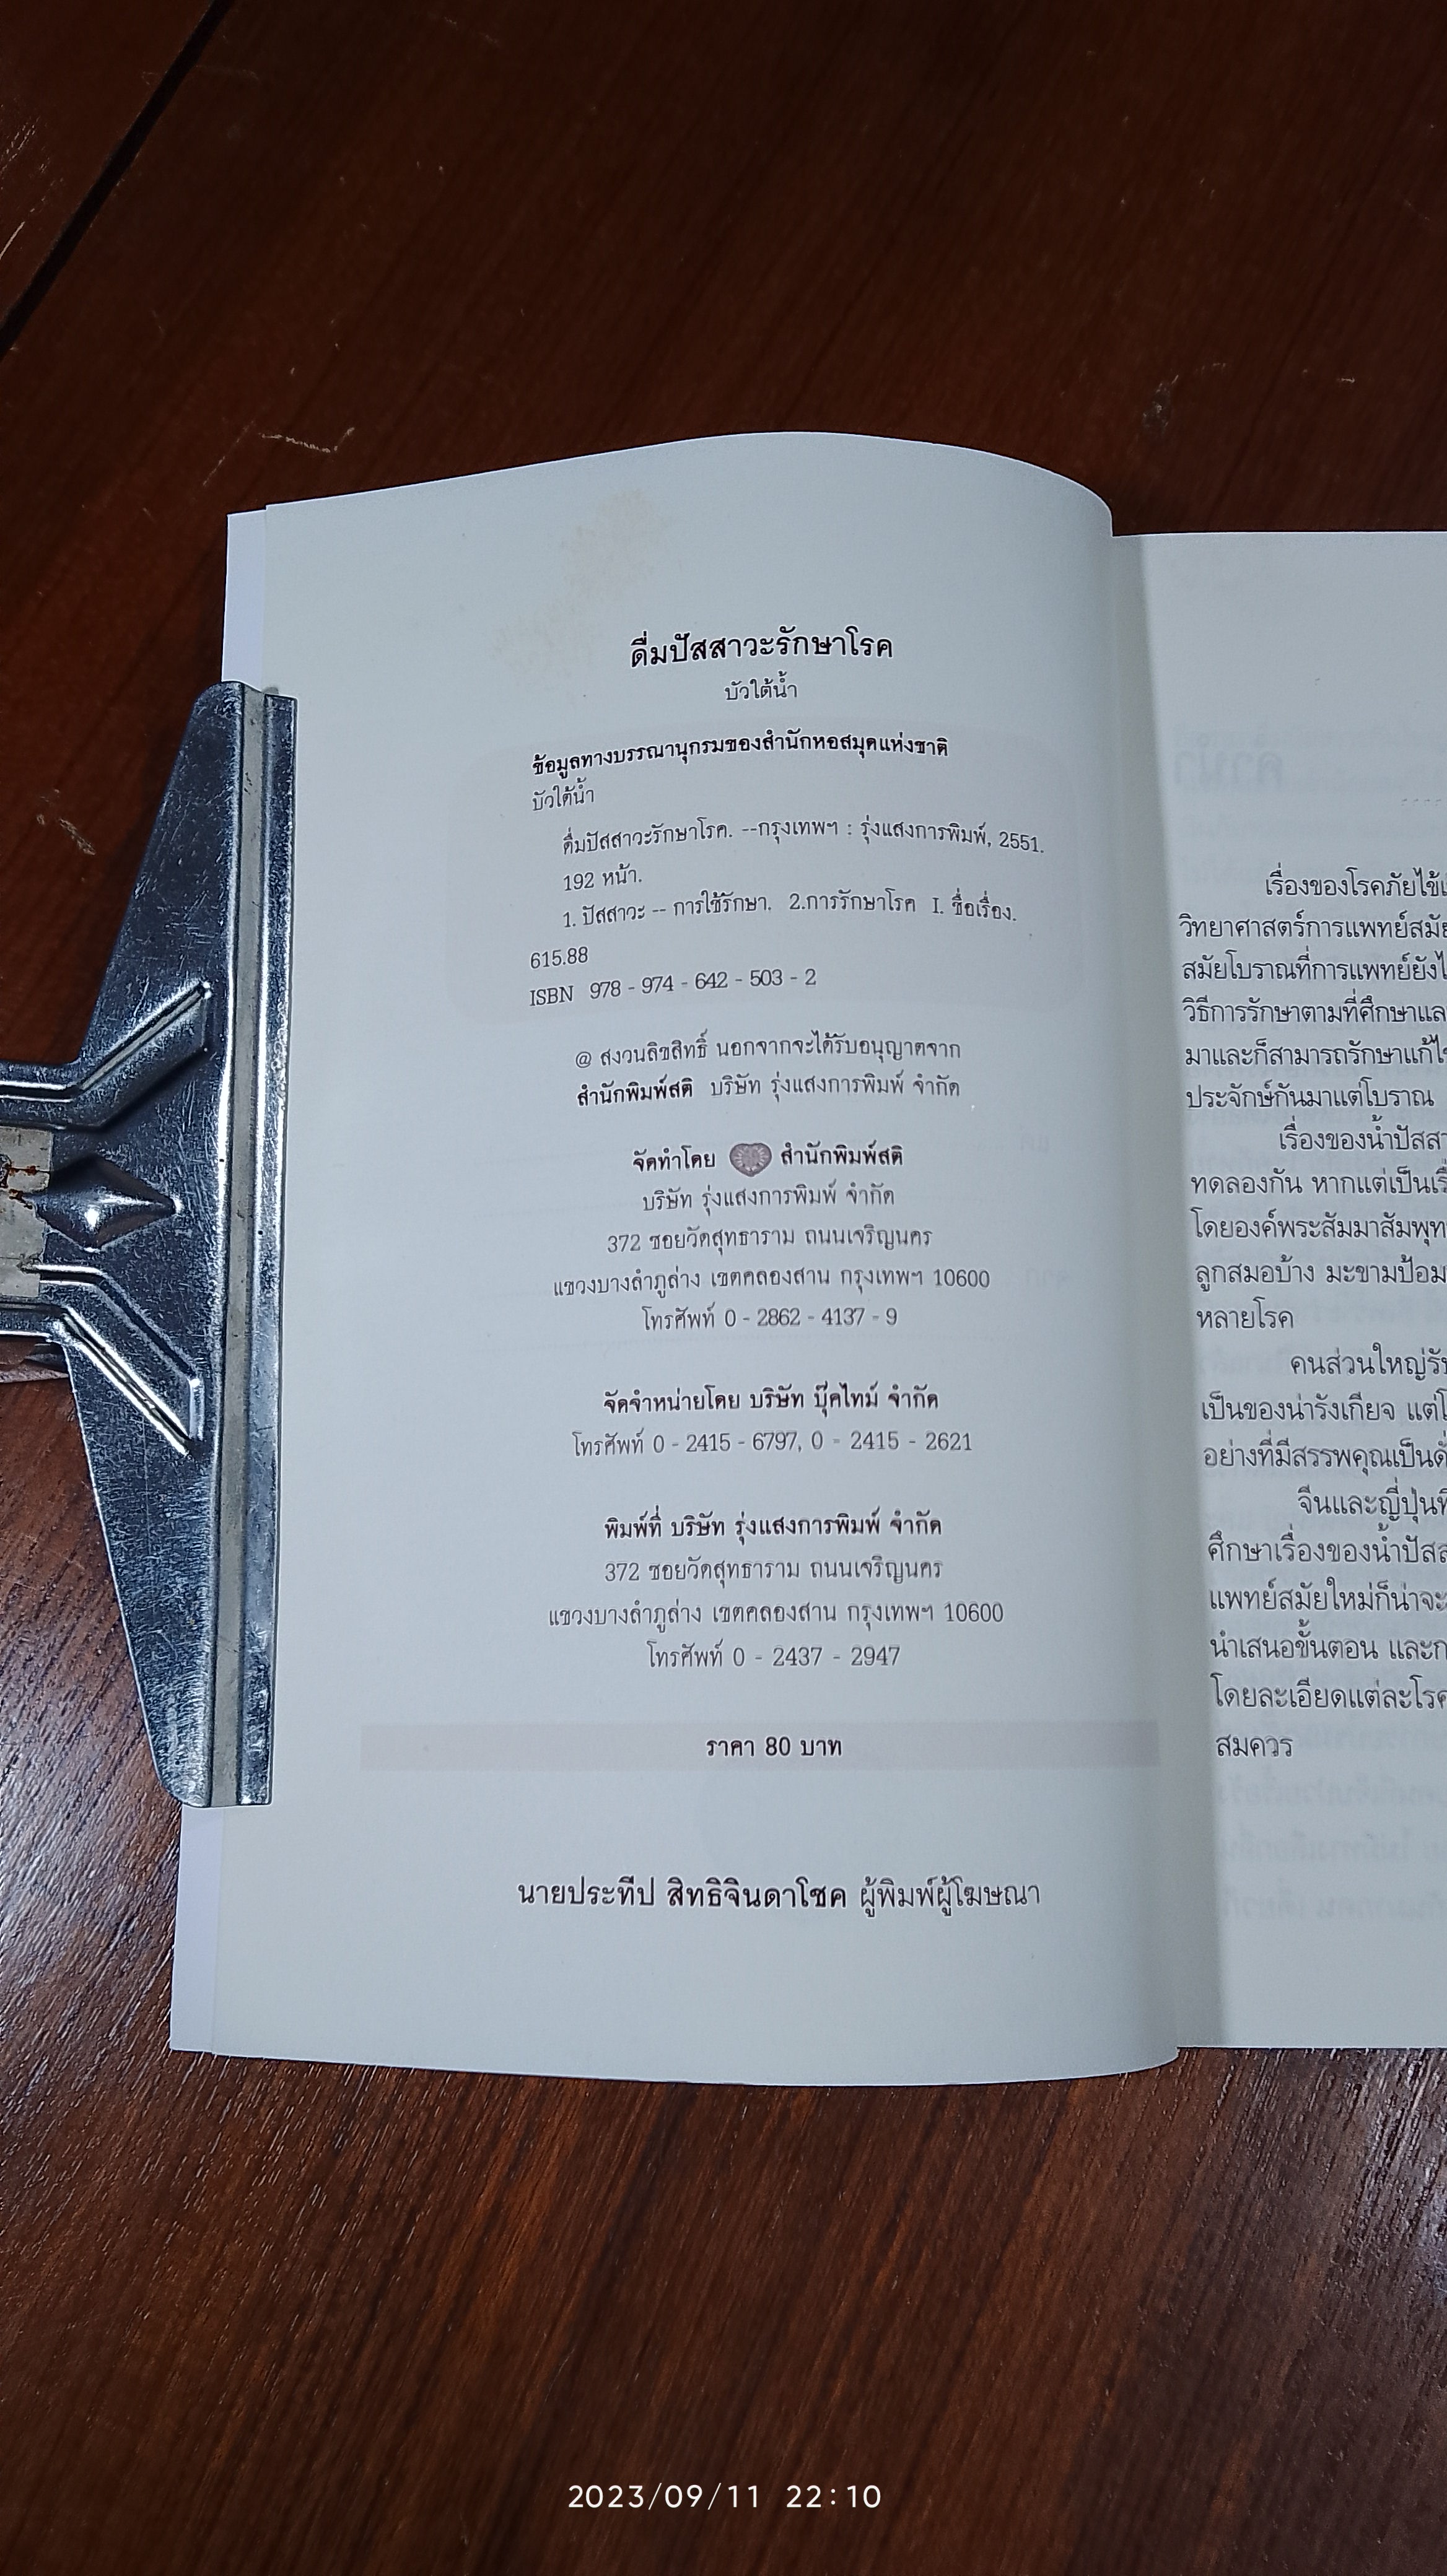 ดื่มปัสสาวะรักษาโรค
บัวใต้น้ำ
ข้อมูลทางบรรณานุกรมของสำนักหอสมุดแห่งชาติ
บัวใต้น้ำ
ดื่มปัสสาวะรักษาโรค. --กรุงเทพฯ : รุ่งแสงการพิมพ์, 2551.
192 หน้า.
1. ปัสสาวะ -- การใช้รักษา. 2.การรักษาโรค I. ชื่อเรื่อง.
615.88
ISBN 978 - 974 - 642 - 503 - 2
@ สงวนลิขสิทธิ์ นอกจากจะได้รับอนุญาตจาก
สำนักพิมพ์สติ บริษัท รุ่งแสงการพิมพ์ จำกัด
จัดทำโดย สำนักพิมพ์สติ
บริษัท รุ่งแสงการพิมพ์ จำกัด
372 ซอยวัดสุทธาราม ถนนเจริญนคร
แขวงบางลำภูล่าง เขตคลองสาน กรุงเทพฯ 10600
โทรศัพท์ 0 - 2862 - 4137 - 9
จัดจำหน่ายโดย บริษัท บุ๊คไทม์ จำกัด
โทรศัพท์ 0 - 2415 - 6797, 0 - 2415 - 2621
พิมพ์ที่ บริษัท รุ่งแสงการพิมพ์ จำกัด
372 ซอยวัดสุทธาราม ถนนเจริญนคร
แขวงบางลำภูล่าง เขตคลองสาน กรุงเทพฯ 10600
โทรศัพท์ 0 - 2437 - 2947
ราคา 80 บาท
นายประทีป สิทธิจินดาโชค ผู้พิมพ์ผู้โฆษณา
เรื่องของโรคภัยไข้
วิทยาศาสตร์การแพทย์สมัย
สมัยโบราณที่การแพทย์ยัง
วิธีการรักษาตามที่ศึกษาแล
มาและก็สามารถรักษาแก้
ประจักษ์กันมาแต่โบราณ
เรื่องของน้ำปัสสา
ทดลองกัน หากแต่เป็นเรื่
โดยองค์พระสัมมาสัมพุท
ลูกสมอบ้าง มะขามป้อม
หลายโรค
คนส่วนใหญ่รั
เป็นของน่ารังเกียจ แต่
อย่างที่มีสรรพคุณเป็น
จีนและญี่ปุ่น
ศึกษาเรื่องของน้ำปัสส
แพทย์สมัยใหม่ก็น่าจะ
นำเสนอขั้นตอน และก
โดยละเอียดแต่ละโรค
สมควร
2023/09/11 22:10